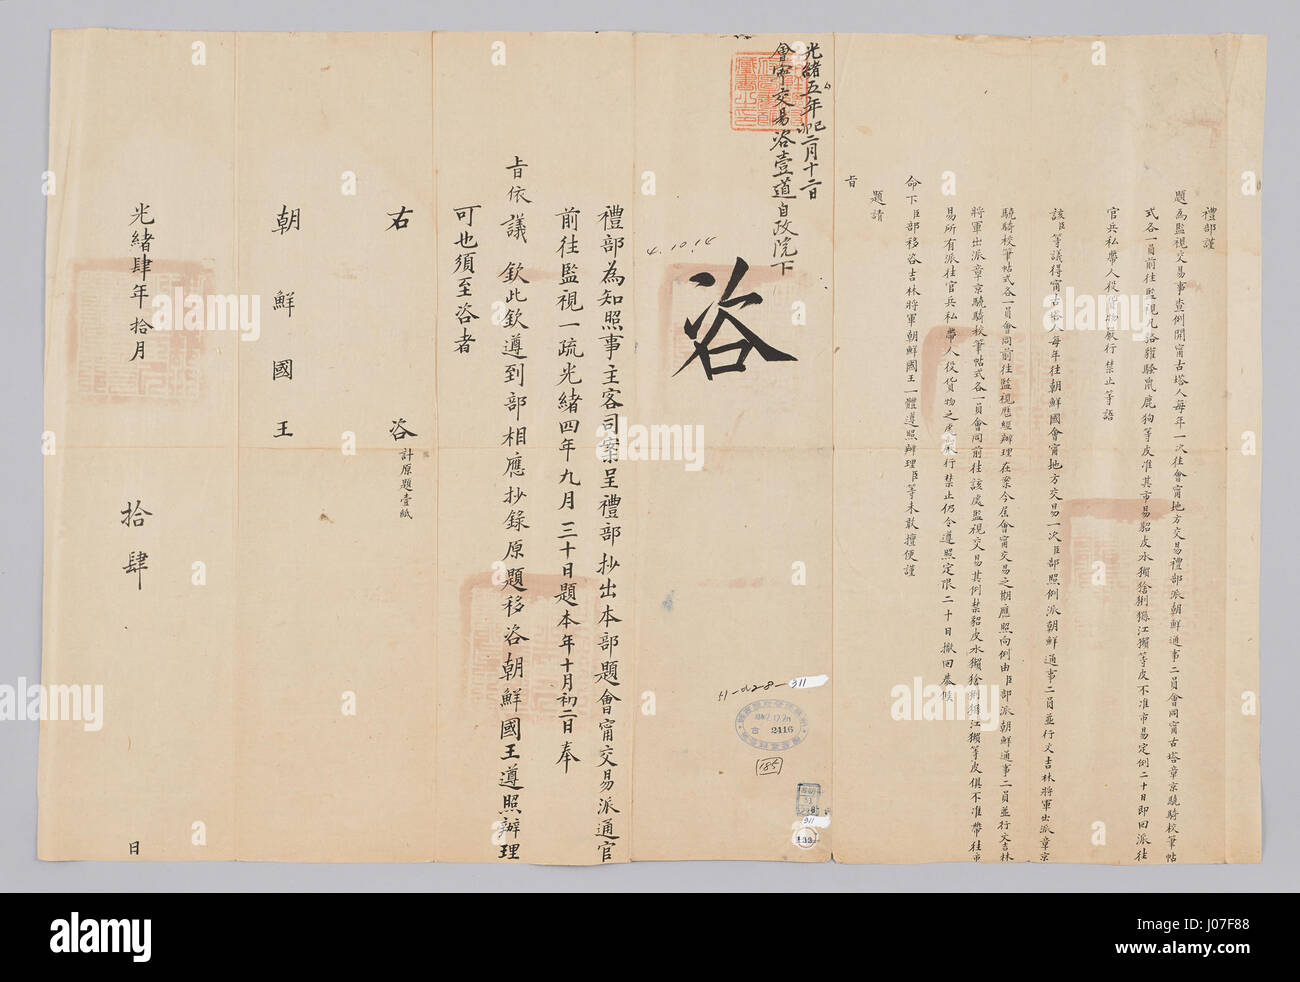 禮部謹
題為監視交易事查例開甯古塔人每年一次往會甯地方交易禮部派朝鮮通事二員會同甯古塔章京驍騎校筆帖
式各一員前往監視凡貉獾騷鼠鹿狗等皮准其市易貂皮水獺猞猁猻江獺等皮不准市易定例二十日即回派往
官兵私帶人役貨物嚴行禁止等語
該臣等議得甯古塔人每年往朝鮮國會甯地方交易一次臣部照例派朝鮮通事二員並行文吉林將軍出派章京
驍騎校筆帖式各一員會同前往監視歷經辦理在案今屆會甯交易之期應照向例由臣部派朝鮮通事二員並行文吉林
將軍出派章京驍騎校筆帖式各一員會同前往該處監視交易其例禁貂皮水獺猞猁猻江獺等皮俱不准帶往市
易所有派往官兵私帶人役貨物之處嚴行禁止仍令遵照定限二十日撤回恭候
命下臣部移咨吉林將軍朝鮮國王一體遵照辦理臣等未敢擅便謹
題請
旨
光緒五年己卯二月十二日
會甯交易咨壹道自政院下
咨
禮部為知照事主客司案呈禮部抄出本部題會甯交易派通官
前往監視一疏光緒四年九月三十日題本年十月初二日奉
旨依議欽此欽遵到部相應抄錄原題移咨朝鮮國王遵照辦理
可也須至咨者
右咨 計原題壹紙
朝鮮國王
光緒肆年拾月 拾肆 日
H-028-311
2416
185
311
alamy
Image ID: J07F88
www.alamy.com